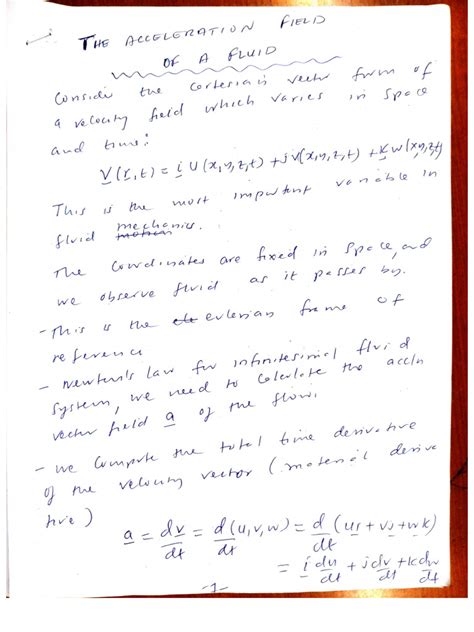 THE ACCELERATION FIELD
OF A FLUID
Consider the cartesian vector form of
a velocity field which varies in space
and time:
V(r,t) = i U(x,y,z,t) + j V(x,y,z,t) + k w(x,y,z,t)
This is the most important variable in
fluid mechanics.
The coordinates are fixed in space, and
we observe fluid as it passes by.
- This is the eulerian frame of
reference
- Newton's law for infinitesimal fluid
system, we need to calculate the accln
vector field a of the flow.
- we compute the total time derivative
of the velocity vector (material deriva
tive)
a = dv/dt = d(u,v,w)/dt = d/dt (ui + vj + wk)
= i du/dt + j dv/dt + k dw/dt
-1-